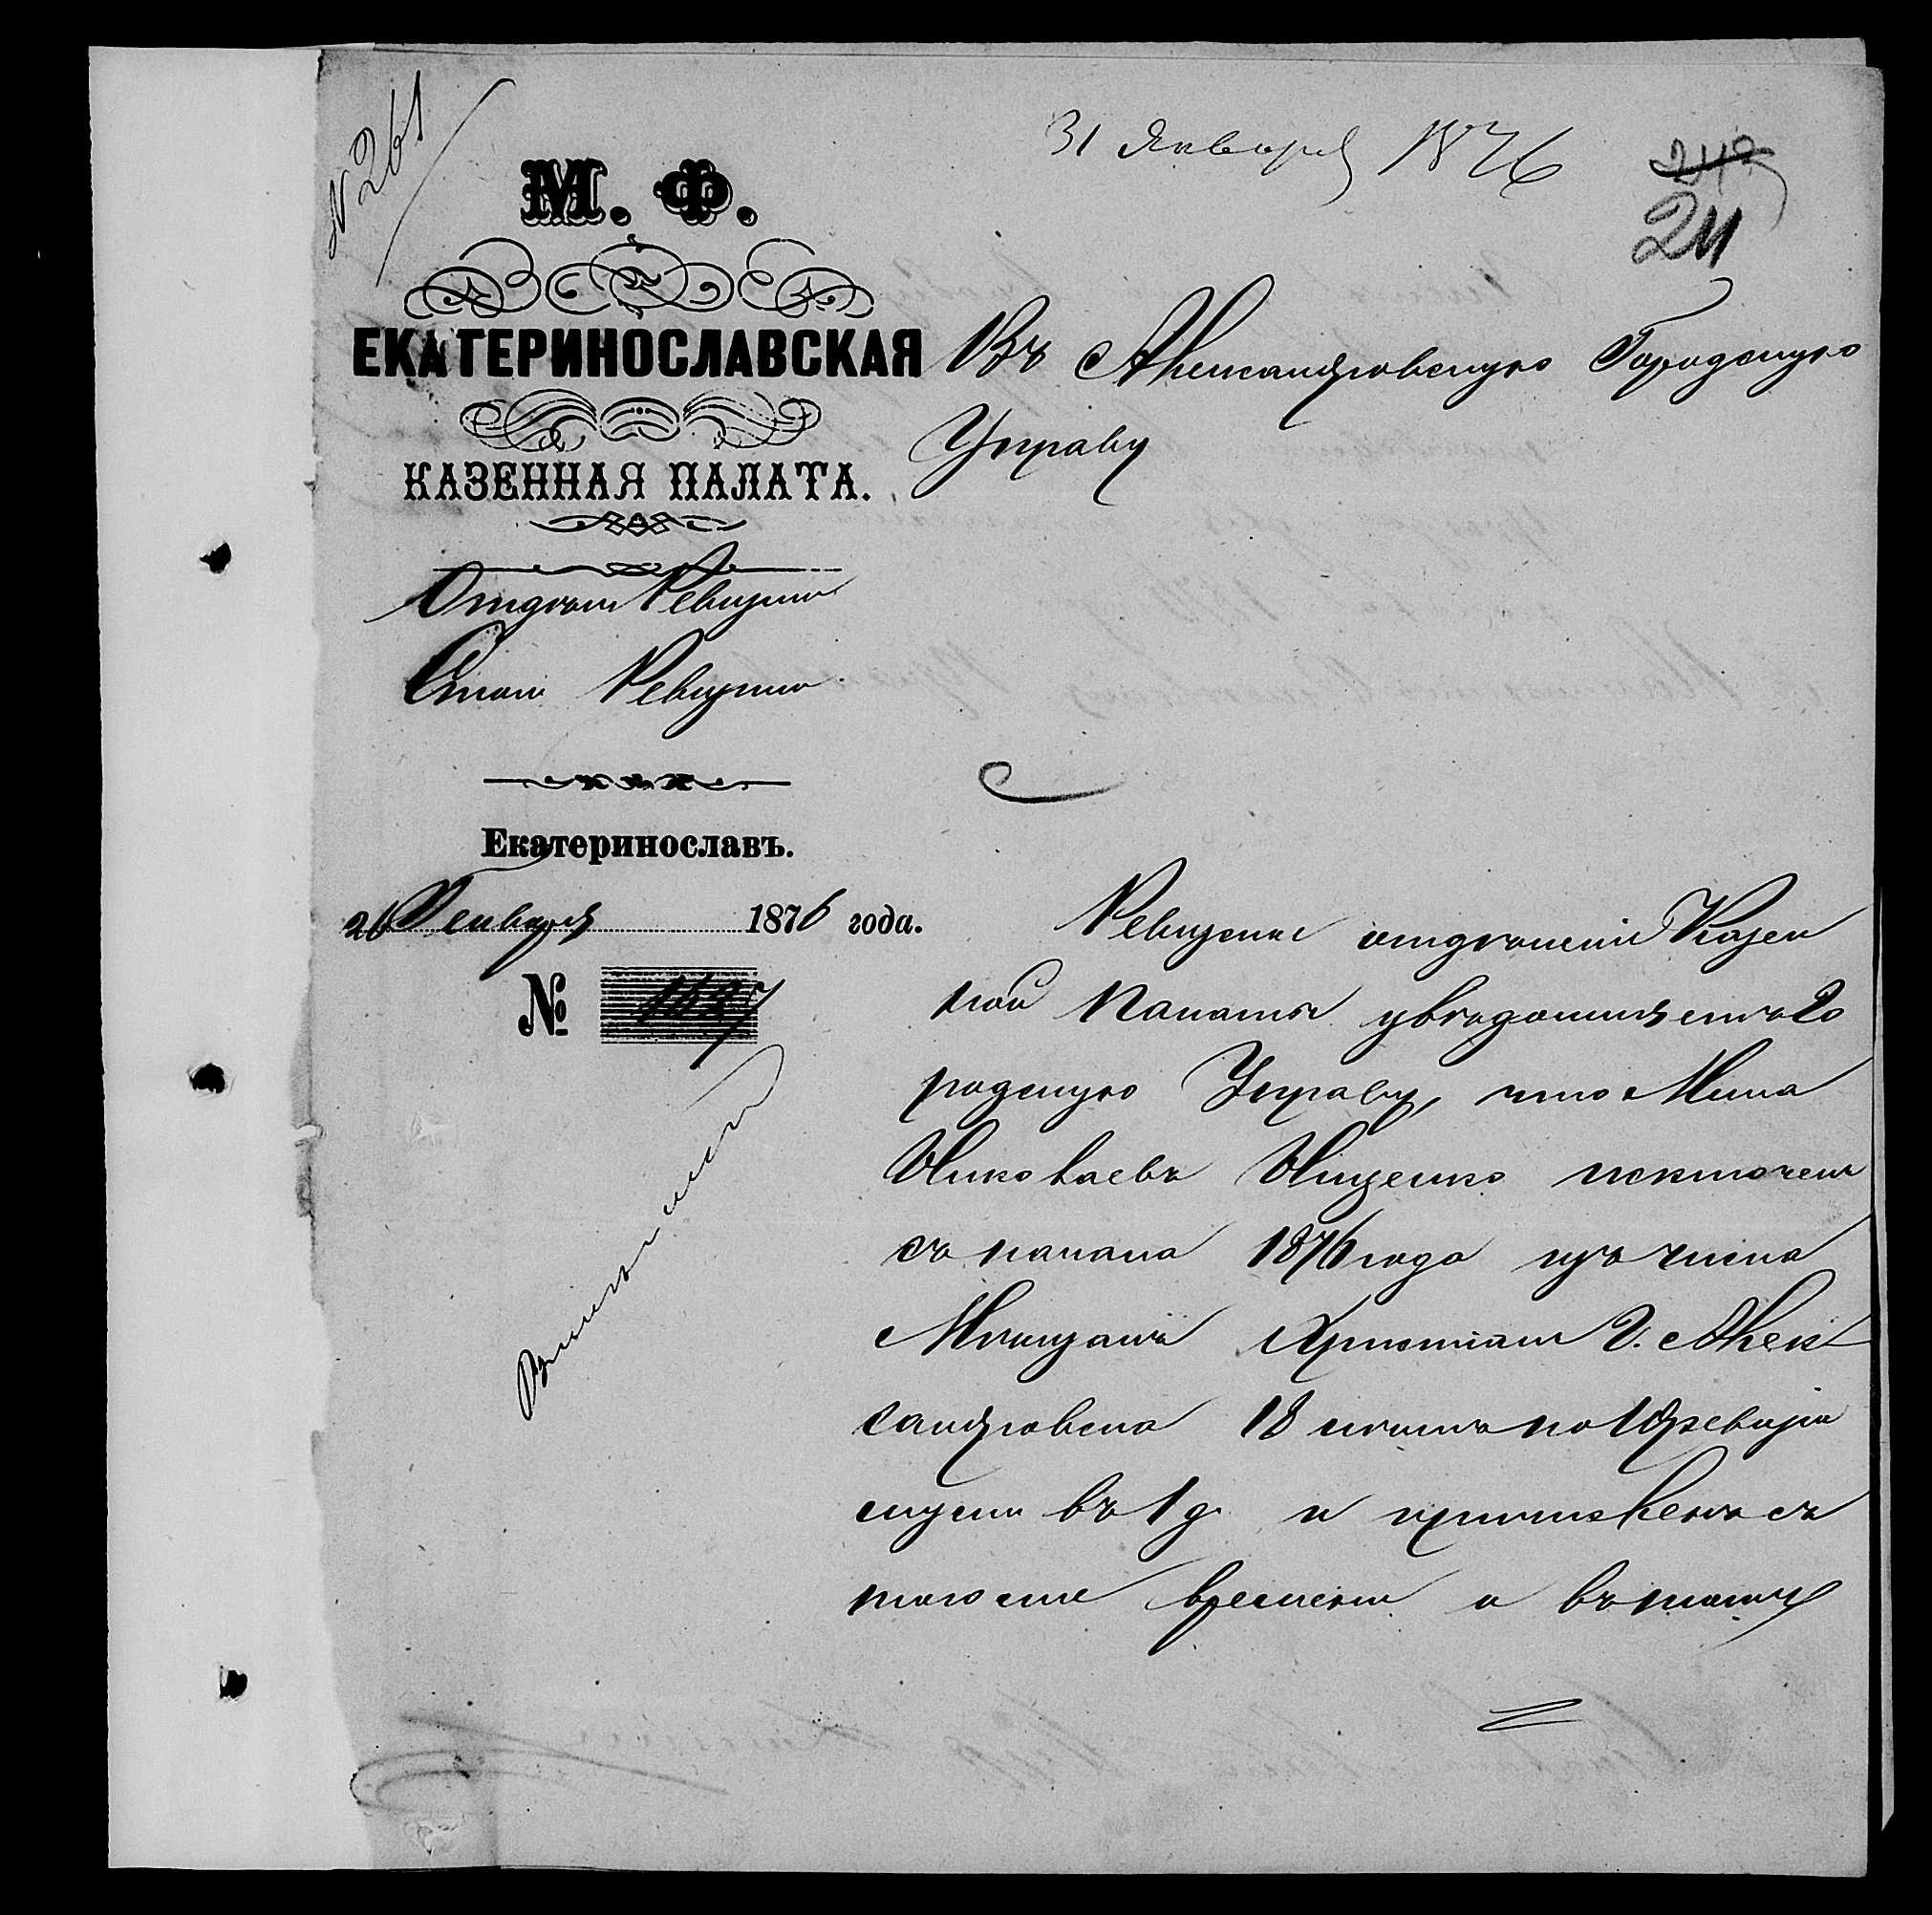 N 261
31 Января 1876
242
241
М. Ф.
ЕКАТЕРИНОСЛАВСКАЯ
КАЗЕННАЯ ПАЛАТА.
Отдѣлен Ревизское
Столъ Ревизскій
Екатеринославъ.
26 Генваря 1876 года.
№ 1627
Въ Александровскую Городскую
Управу
Ревизское отдѣленіе Казен
ной Палаты увѣдомляетъ Го
родскую Управу, что Мина
Николаевъ Ищенко исключенъ
съ начала 1876 года изъ числа
Мѣщанъ Христіанъ г. Алек
сандровска по 10 ревизіи
въ 1 д. и причисленъ съ
того же времени въ